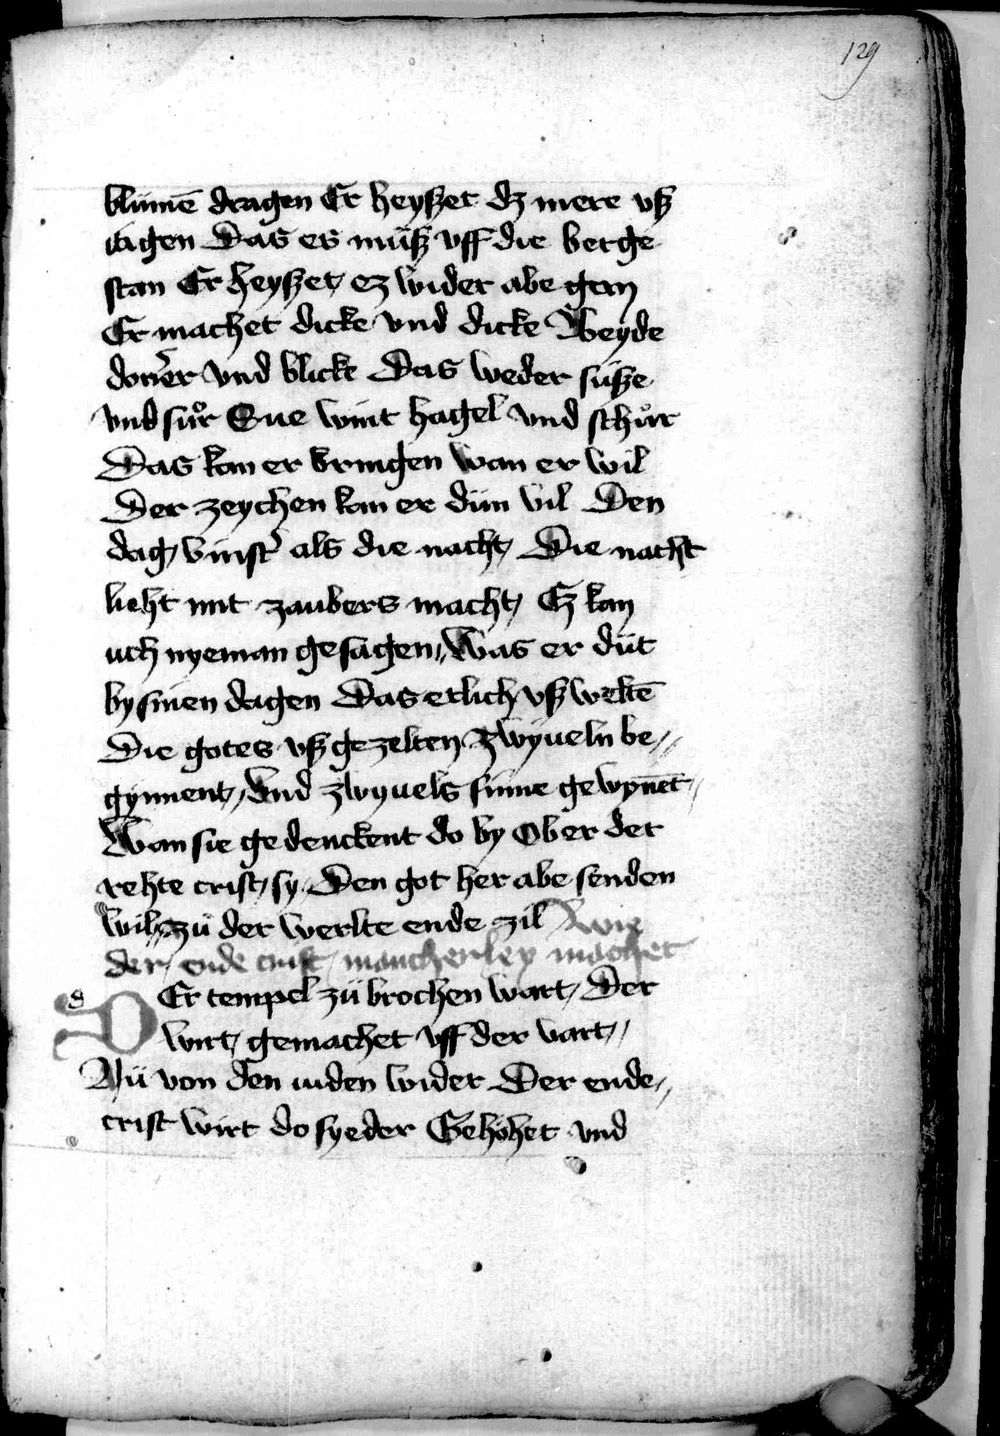 129
blümē dragen Er heyßet dz mere vß
iagen Das es müß vff die berge
stan Er heyßet ez wider abe gen
Er machet dicke vnd dicke Beyde
doner vnd blicke Das weder süße
vnd suͦr Sne wint hagel vnd schuͦr
Das kan er bringen wan er wil
Der zeychen kan er dün vil Den
dag vinst̓ als die nacht Die nacht
lieht mit zaubers macht Ez kan
uch nyeman gesagen Was er düt
by sinen dagen Das etlich vß welte̅
Die gotes vß gezelten Zwyueln be//
gynnent Vnd zwyuels sinne gewyn̅et
Wan sie gedenckent do by Ob er der
rehte crist sy Den got her abe senden
wil zü der werlte ende zil Wie
der ende crist mancherley machet
d
DEr tempel zü brochen wart Der
wirt gemachet vff der vart
Nü von den iuden wider Der ende//
crist wirt do syeder Gehöhet vnd